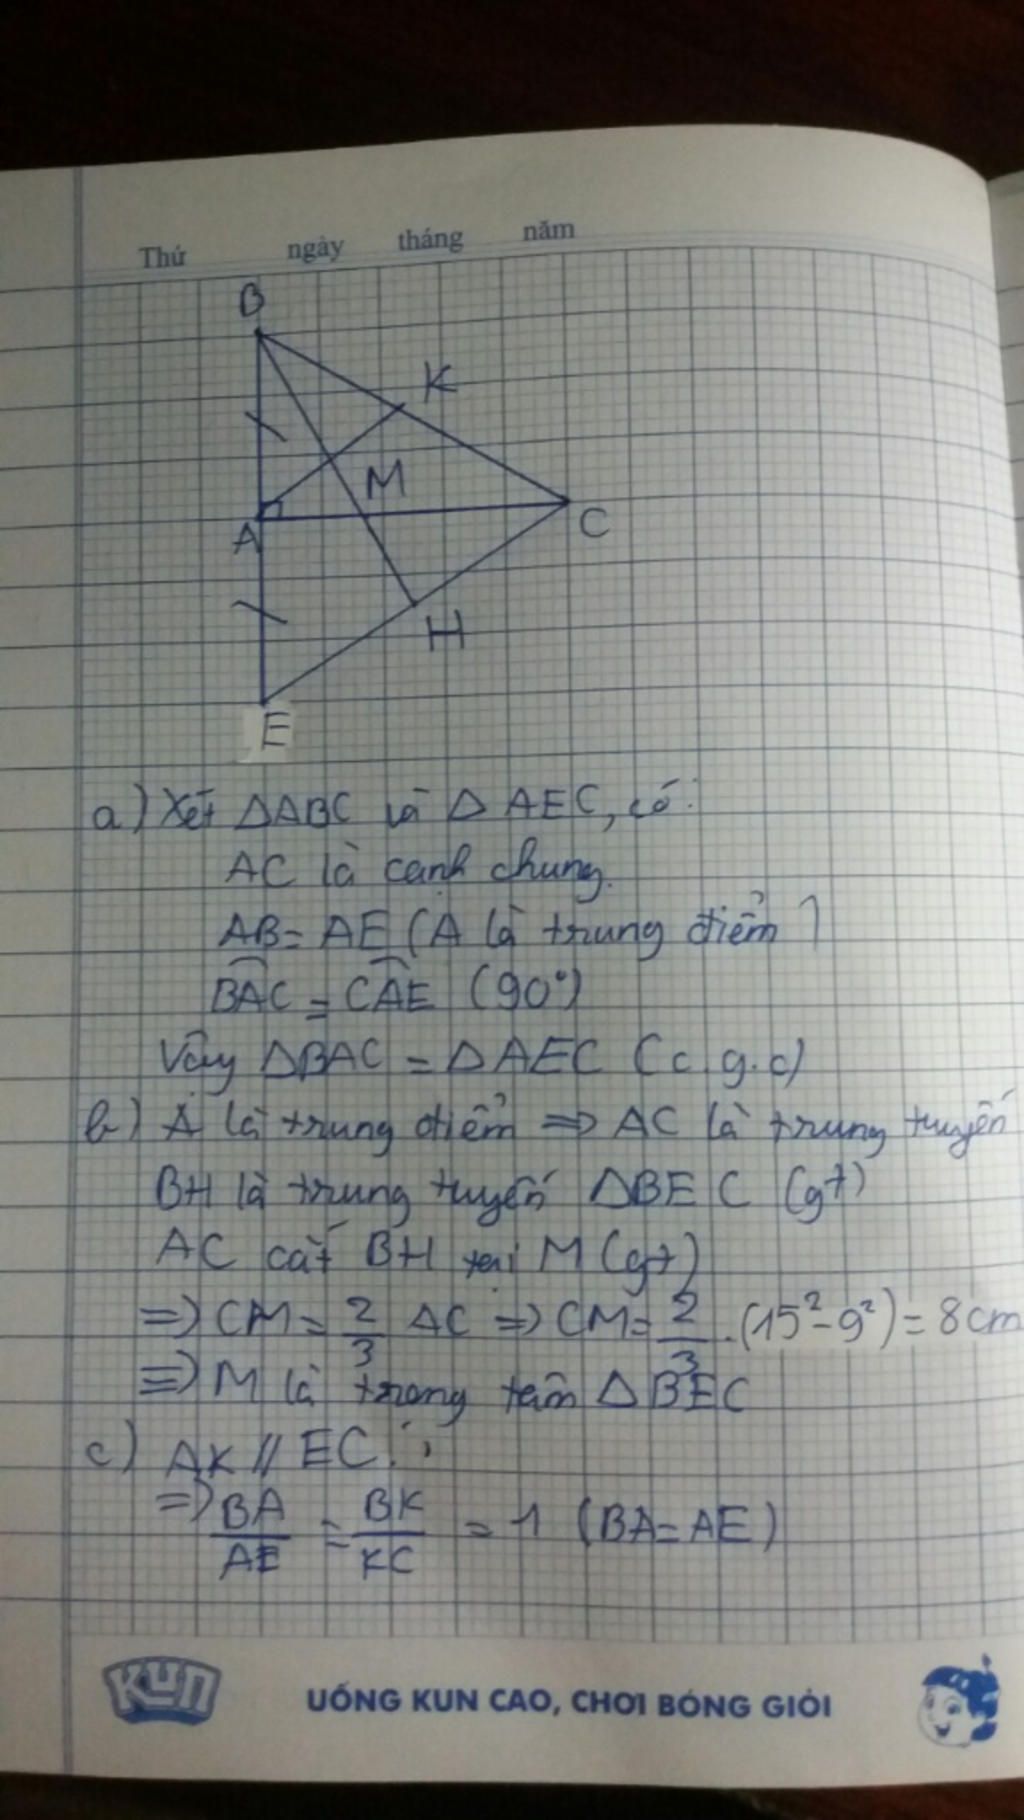 Thứ ngày tháng năm
B
K
M
A
C
H
E
a) Xét ΔABC và Δ AEC, có:
AC là cạnh chung.
AB = AE (A là trung điểm)
BAC = CAE (90°)
Vậy ΔBAC = ΔAEC (c.g.c)
b) A là trung điểm => AC là trung tuyến
BH là trung tuyến ΔBEC (gt)
AC cắt BH tại M (gt)
=> CM = 2/3 AC => CM = 2/3 .(15²-9²) = 8cm
=> M là trọng tâm ΔBEC
c) AK // EC
=> BA/AE = BK/KC = 1 (BA = AE)
KUN
UỐNG KUN CAO, CHƠI BÓNG GIỎI